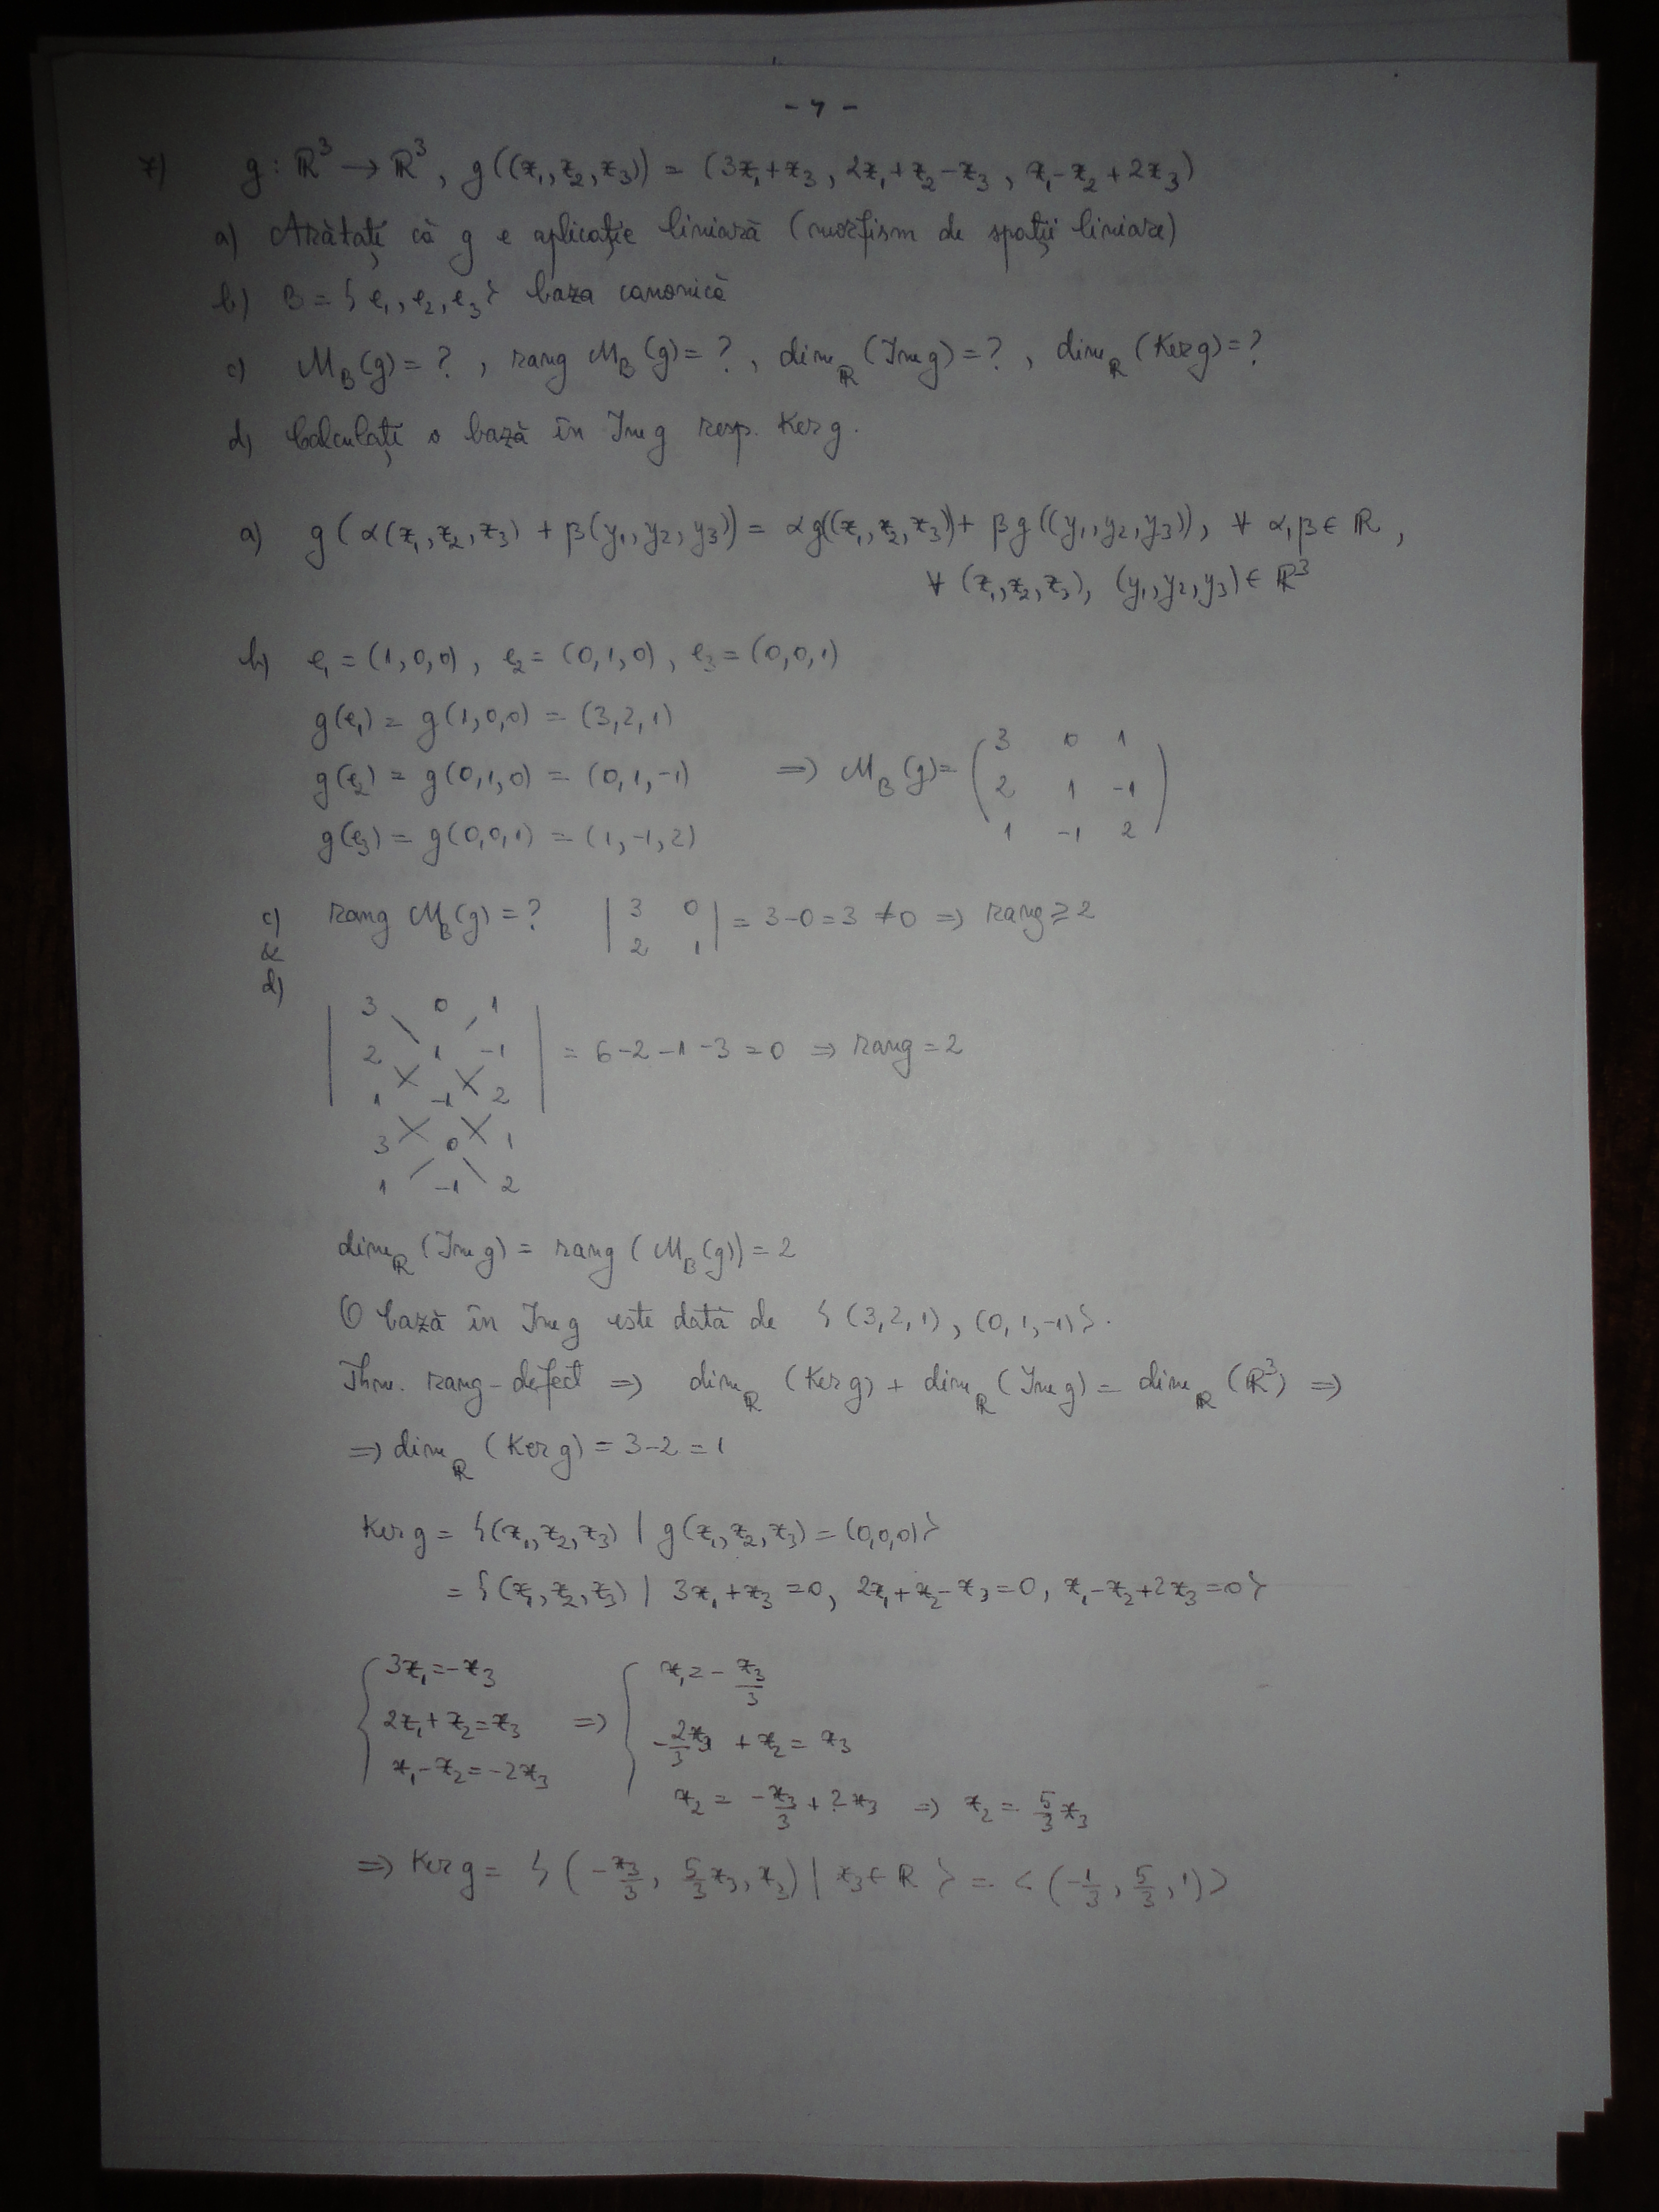 - 4 -
7) g : ℝ³ → ℝ³, g((x₁, x₂, x₃)) = (3x₁+x₃, 2x₁+x₂-x₃, x₁-x₂+2x₃)
a) Arătați că g e aplicație liniară (morfism de spații liniare)
b) B = {e₁, e₂, e₃} baza canonică
c) M_B(g) = ?, rang M_B(g) = ?, dim_ℝ(Im g) = ?, dim_ℝ(Ker g) = ?
d) Calculați o bază în Im g resp. Ker g.
a) g(α(x₁, x₂, x₃) + β(y₁, y₂, y₃)) = αg((x₁, x₂, x₃)) + βg((y₁, y₂, y₃)), ∀ α, β ∈ ℝ,
∀ (x₁, x₂, x₃), (y₁, y₂, y₃) ∈ ℝ³
b) e₁ = (1, 0, 0), e₂ = (0, 1, 0), e₃ = (0, 0, 1)
g(e₁) = g(1, 0, 0) = (3, 2, 1)
g(e₂) = g(0, 1, 0) = (0, 1, -1) ⇒ M_B(g) = ( 3 0 1
2 1 -1
1 -1 2 )
g(e₃) = g(0, 0, 1) = (1, -1, 2)
c) & d) rang M_B(g) = ? | 3 0
2 1 | = 3-0 = 3 ≠ 0 ⇒ rang ≥ 2
| 3 0 1
2 1 -1
1 -1 2 | = 6-2-1-3 = 0 ⇒ rang = 2
3 0 1
1 -1 2
dim_ℝ(Im g) = rang(M_B(g)) = 2
O bază în Im g este dată de {(3, 2, 1), (0, 1, -1)}.
Thm. rang-defect ⇒ dim_ℝ(Ker g) + dim_ℝ(Im g) = dim_ℝ(ℝ³) ⇒
⇒ dim_ℝ(Ker g) = 3-2 = 1
Ker g = {(x₁, x₂, x₃) | g(x₁, x₂, x₃) = (0,0,0)}
= {(x₁, x₂, x₃) | 3x₁+x₃ = 0, 2x₁+x₂-x₃ = 0, x₁-x₂+2x₃ = 0}
{ 3x₁ = -x₃ ⇒ { x₁ = -x₃/3
2x₁+x₂ = x₃ -2/3 x₃ + x₂ = x₃
x₁-x₂ = -2x₃ x₂ = -x₃/3 + 2x₃ ⇒ x₂ = 5/3 x₃
⇒ Ker g = {(-x₃/3, 5/3 x₃, x₃) | x₃ ∈ ℝ} = <(-1/3, 5/3, 1)>